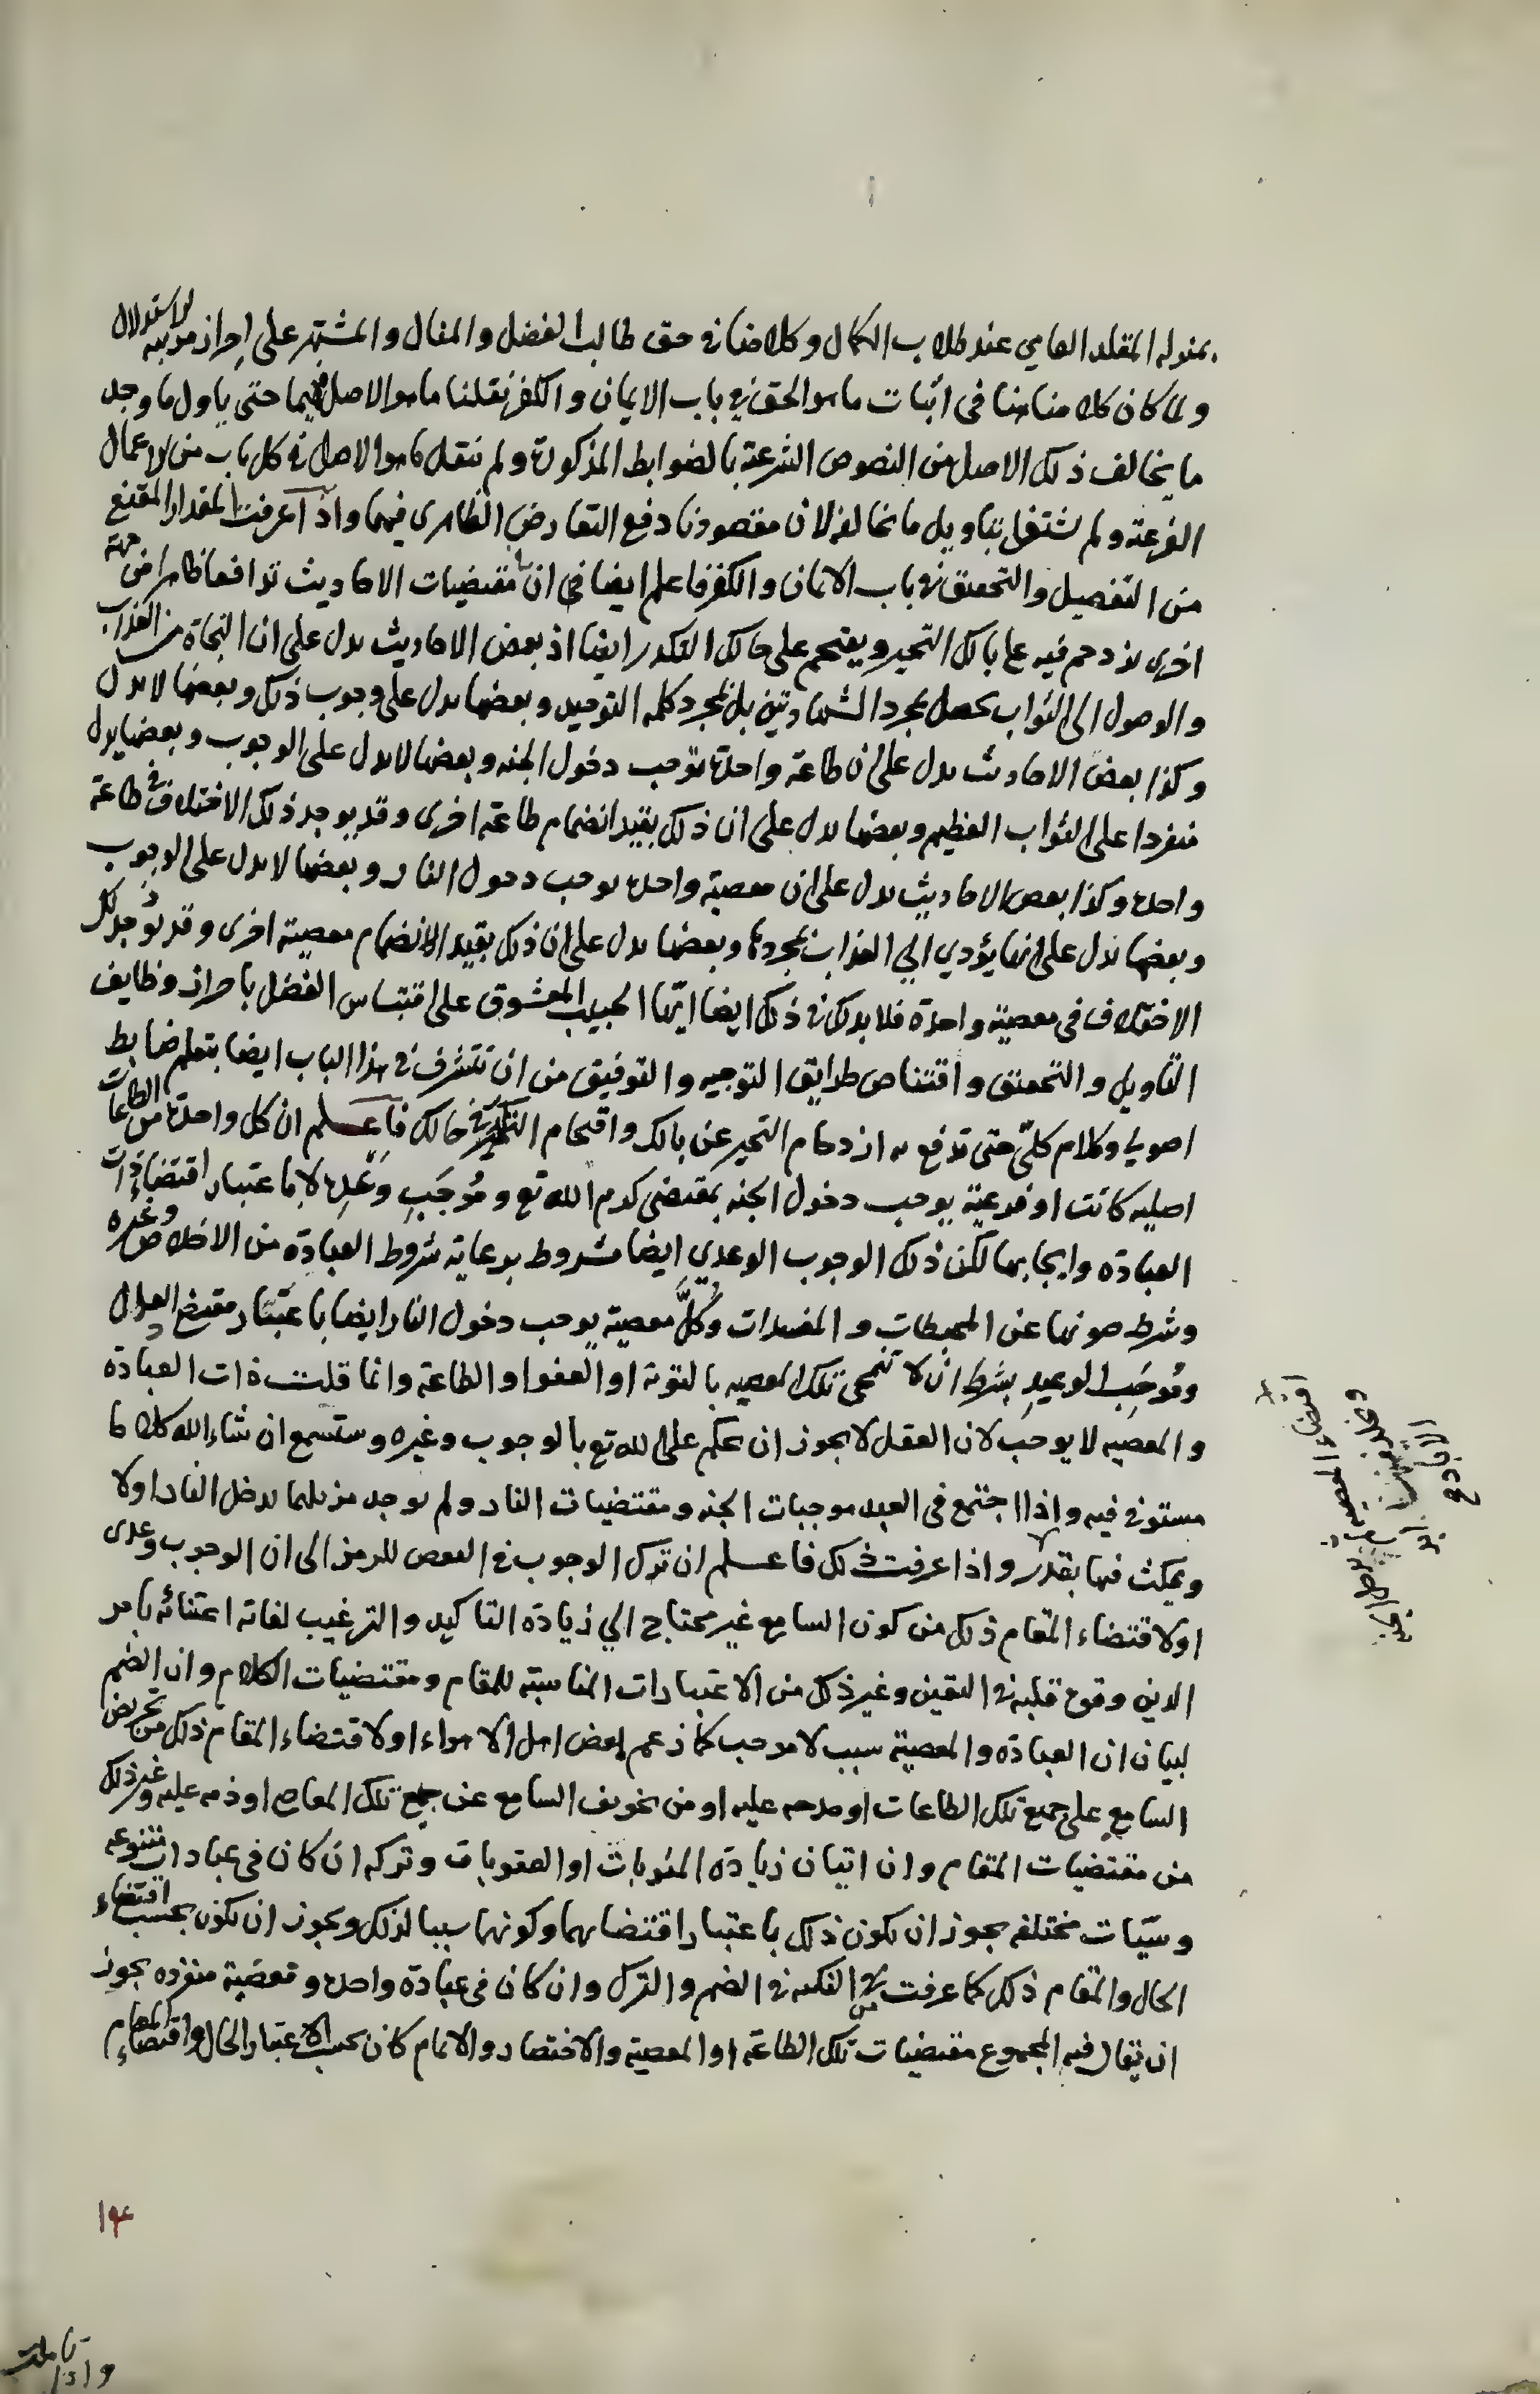 بمنزلة المقلد العامي عند طلاب الكمال وكلامنا في حق طالب الفضل والمنال والمشتهر على احراز مرتبة الاستدلال
ولما كان كلامنا هنا في اثبات ما هو الحق في باب الايمان والكفر نقلنا ما هو الاصل فيهما حتى ياول ما وجد
ما يخالف ذلك الاصل من النصوص الشرعية بالضوابط المذكورة ولم ننقل ما هو الاصل في كل باب من الاعمال
الفرعية ولم نشتغل بتاويل ما يخالفه لان مقصودنا دفع التعارض الظاهري فيهما واذا عرفت المقدار المقنع
من التفصيل والتحقيق في باب الايمان والكفر فاعلم ايضا ان في مقتضيات الاحاديث تدافعا ظاهرا من جهة
اخرى يزدحم فيه على بالك التحير ويقتحم على حالك التكدر ايضا اذ بعض الاحاديث يدل على ان النجاة من العذاب
والوصول الى الثواب يحصل بمجرد الشهادتين بل بمجرد كلمة التوحيد وبعضها يدل على وجوب ذلك وبعضها لا يدل
وكذا بعض الاحاديث يدل على ان طاعة واحدة توجب دخول الجنة وبعضها لا يدل على الوجوب وبعضها يدل
منفردا على الثواب العظيم وبعضها يدل على ان ذلك بقيد انضمام طاعة اخرى وقد يوجد ذلك الاختلاف في طاعة
واحدة وكذا بعض الاحاديث يدل على ان معصية واحدة يوجب دخول النار وبعضها لا يدل على الوجوب
وبعضها يدل على انها يؤدي الي العذاب بمجردها وبعضها يدل على ان ذلك بقيد الانضمام معصية اخرى وقد توجد تلك
الاختلاف في معصية واحدة فلا بد لك في ذلك ايضا ايها الحبيب المعشوق على اقتباس الفضل باحراز وظايف
التاويل والتحقيق واقتناص طرايق التوجيه والتوفيق من ان تتشرف في هذا الباب ايضا بتعلم ضابط
اصولي وكلام كلي حتى تدفع به ازدحام التحير عن بالك واقتحام التكدر في حالك فاعلم ان كل واحدة من الطاعات
اصلية كانت او فرعية يوجب دخول الجنة بمقتضى كرم الله تع ومُوجَبِ وَعْدِه لا باعتبار اقتضاء ذات
العبادة وايجابها لكن ذلك الوجوب الوعدي ايضا مشروط برعاية شروط العبادة من الاخلاص وغيره
وشرط صونها عن المحبطات والمفسدات وكلُّ معصية يوجب دخول النار ايضا باعتبار مقتضى العدل
ومُوجَبِ الوعيد بشرط ان لا تنمحى تلك المعصية بالتوبة او العفو او الطاعة وانما قلت ذات العبادة
والمعصية لا يوجب لان العقل لا يجوز ان يحكم على الله تع بالوجوب وغيره وستسمع ان شاء الله كلاما
مستوفي فيه واذا اجتمع في العبد موجبات الجنة ومقتضيات النار ولم يوجد مزيلها يدخل النار اولا
ويمكث فيها بقدر واذا عرفت ذلك فاعلم ان ترك الوجوب في البعض للرمز الى ان الوجوب وعدي
او لاقتضاء المقام ذلك من كون السامع غير محتاج الي زيادة التاكيد والترغيب لغاية اعتنائه بامر
الدين وقوع قلبه في اليقين وغير ذلك من الاعتبارات المناسبة للمقام ومقتضيات الكلام وان الضم
لبيان ان العبادة والمعصية سبب لا موجب كما زعم بعض اهل الاهواء او لاقتضاء المقام ذلك من تحريض
السامع على جميع تلك الطاعات او مدحه عليه او من تخويف السامع عن جميع تلك المعاصي او ذمه عليه وغير ذلك
من مقتضيات المقام وان اتيان زيادة المثوبات او العقوبات وتركه ان كان في عبادات متنوعة
وسيّات مختلفة يجوز ان يكون ذلك باعتبار اقتضائهما وكونهما سببا لذلك ويجوز ان يكون بحسب اقتضاء
الحال والمقام ذلك كما عرفت من النكتة في الضم والترك وان كان في عبادة واحدة ومعصية منفردة يجوز
ان يقال فيه المجموع مقتضيات تلك الطاعة او المعصية والاختصار والاتمام كان بحسب الاعتبار الحال واقتضاء المقام
١٣
واذا تاملت